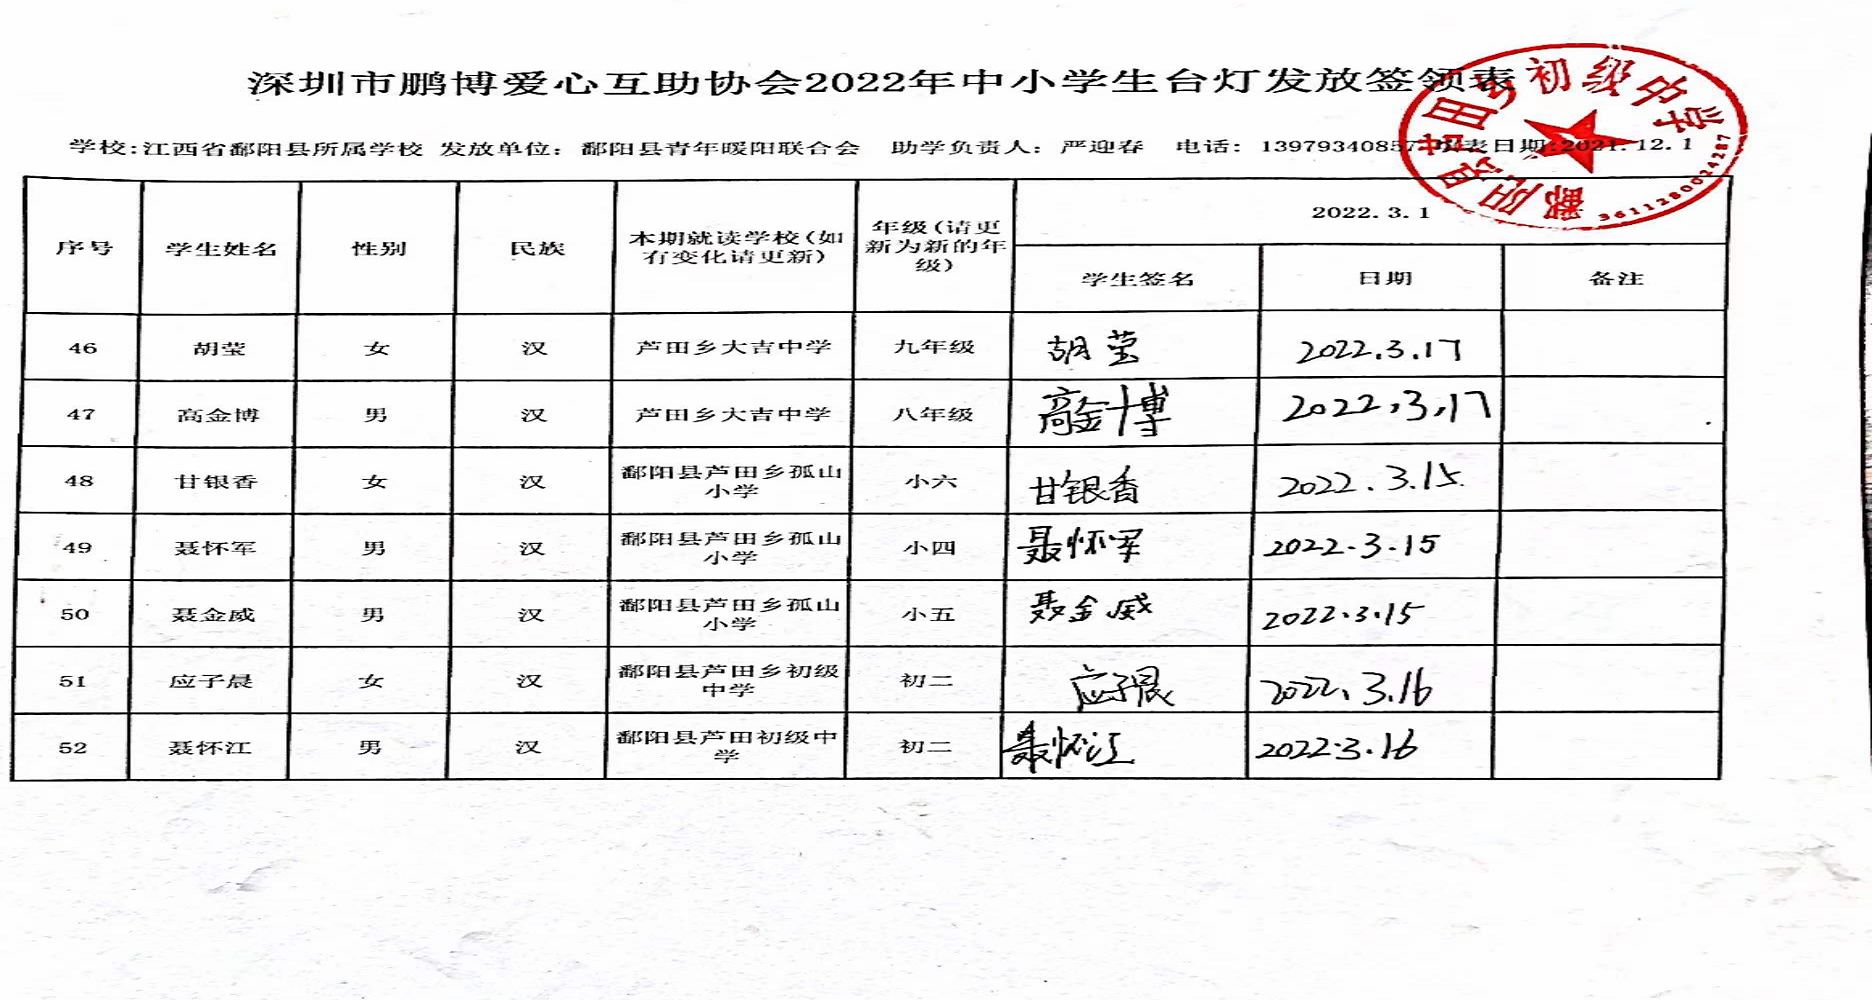 深圳市鹏博爱心互助协会2022年中小学生台灯发放签领表
学校:江西省鄱阳县所属学校 发放单位：鄱阳县青年暖阳联合会 助学负责人：严迎春 电话：13979340857 制表日期:2021.12.1
鄱阳县芦田乡初级中学
3611280024287
序号 学生姓名 性别 民族 本期就读学校(如有变化请更新) 年级(请更新为新的年级) 2022.3.1
学生签名 日期 备注
46 胡莹 女 汉 芦田乡大吉中学 九年级 胡莹 2022.3.17
47 高金博 男 汉 芦田乡大吉中学 八年级 高金博 2022.3.17
48 甘银香 女 汉 鄱阳县芦田乡孤山小学 小六 甘银香 2022.3.15.
49 聂怀军 男 汉 鄱阳县芦田乡孤山小学 小四 聂怀军 2022.3.15
50 聂金威 男 汉 鄱阳县芦田乡孤山小学 小五 聂金威 2022.3.15
51 应子晨 女 汉 鄱阳县芦田乡初级中学 初二 应子晨 2022.3.16
52 聂怀江 男 汉 鄱阳县芦田初级中学 初二 聂怀江 2022.3.16